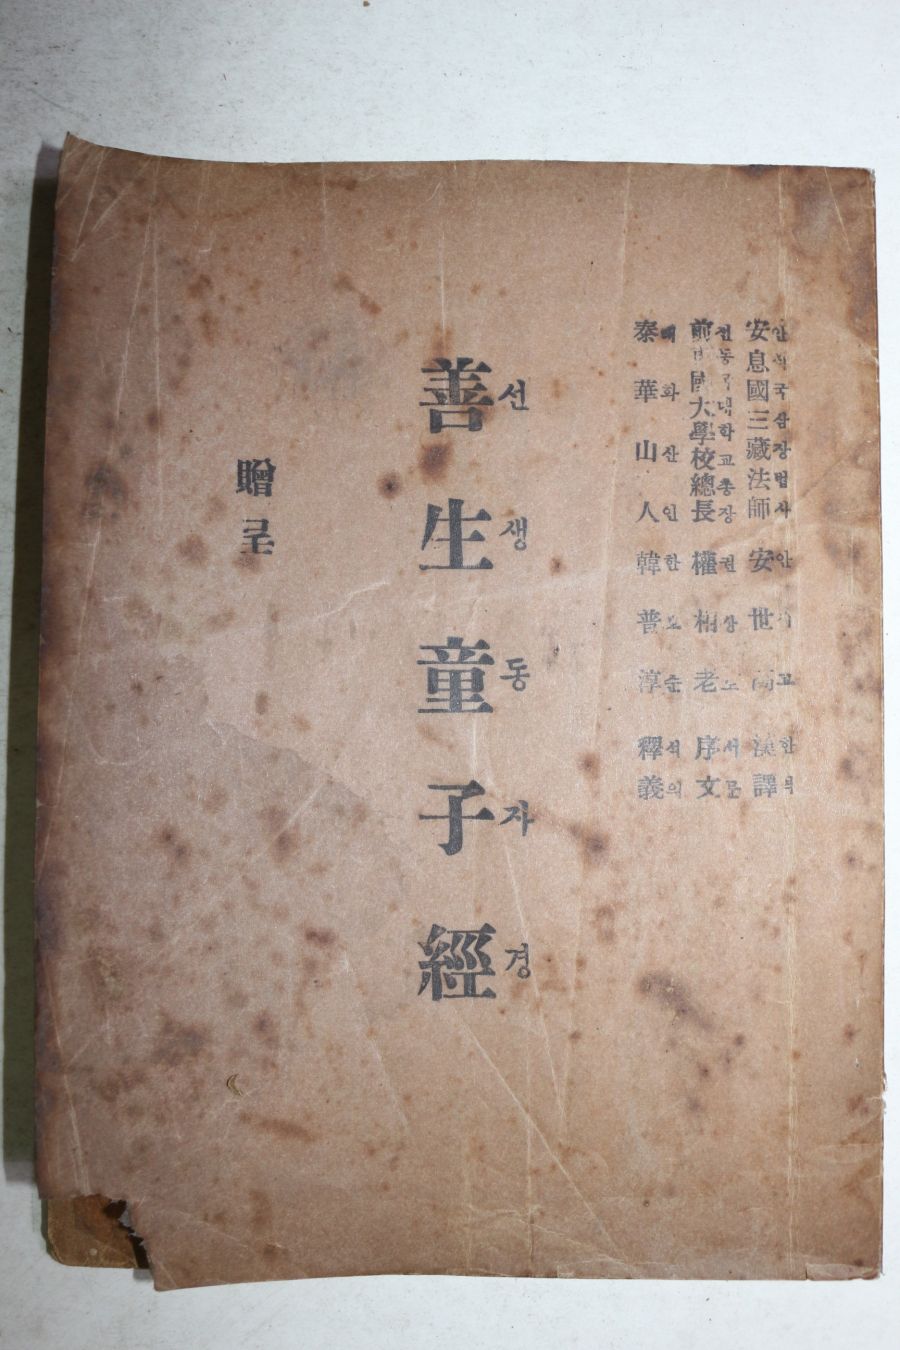 安息國三藏法師 安世高 漢譯
안식국삼장법사 안세고 한역
前東國大學校總長 權相老 序文
전동국대학교총장 권상노 서문
泰華山人 韓普淳 釋義
태화산인 한보순 석의
善生童子經
선생동자경
贈呈